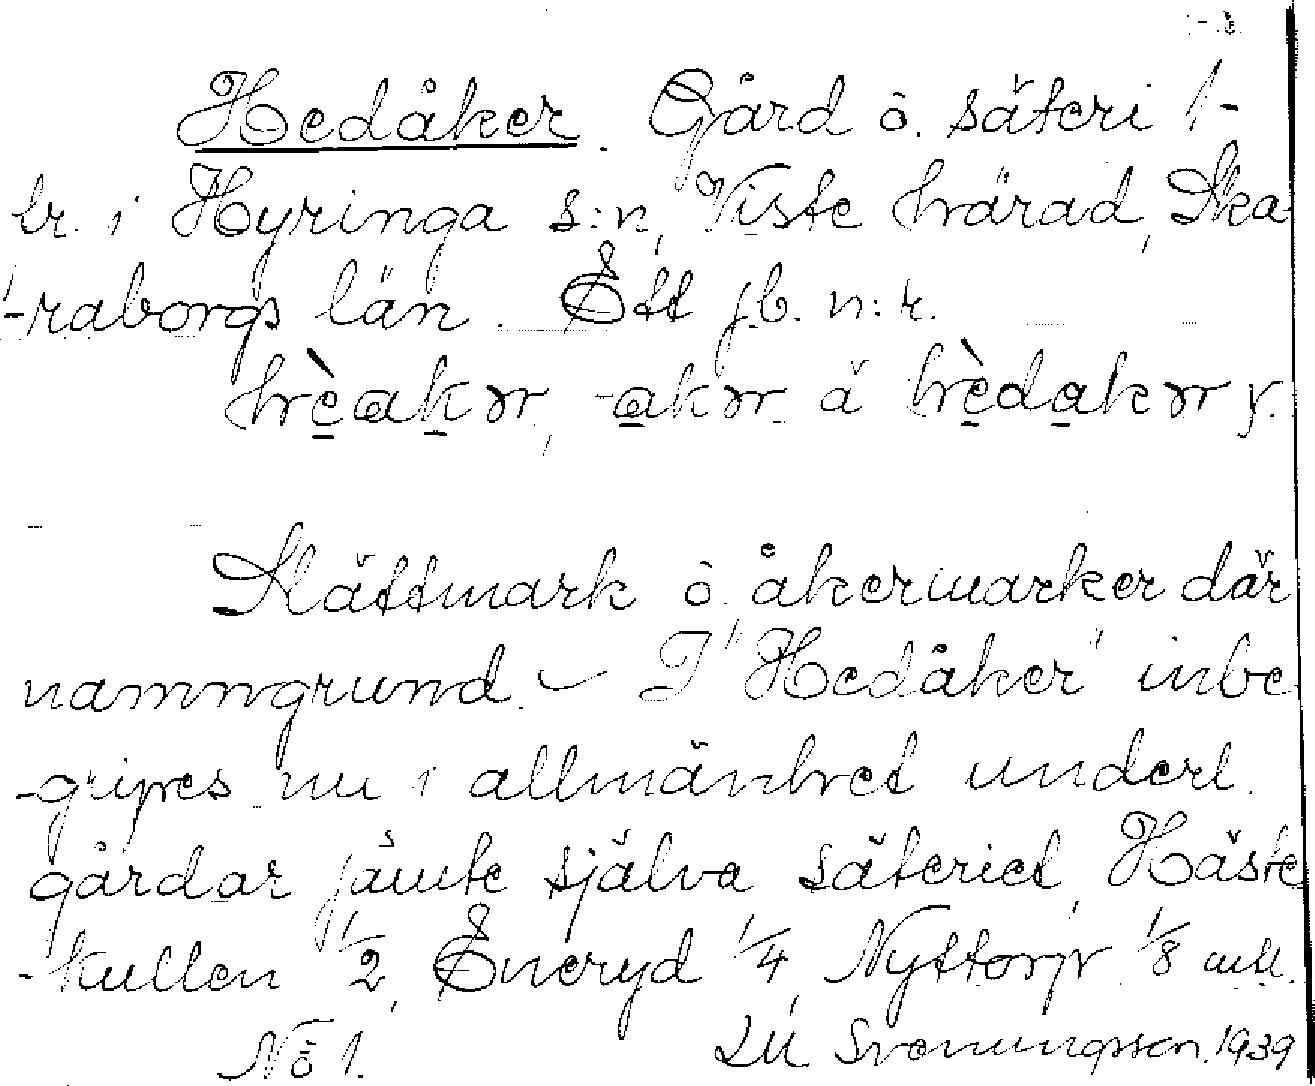 Hedåker. Gård o. säteri 1-
br. i Hyringa s:n, Viste härad, Ska-
-raborgs län. Ett jb. n:r.
hèakər, -akər å hèdakər y.
Slättmark o. åkermarker där
namngrund. – I "Hedåker" inbe-
-gripes nu i allmänhet underl.
gårdar jämte själva säteriet, Häste-
-kullen 1/2, Eneryd 1/4, Nyttorp 1/8 mtl.
No 1. Svenungsson. 1939